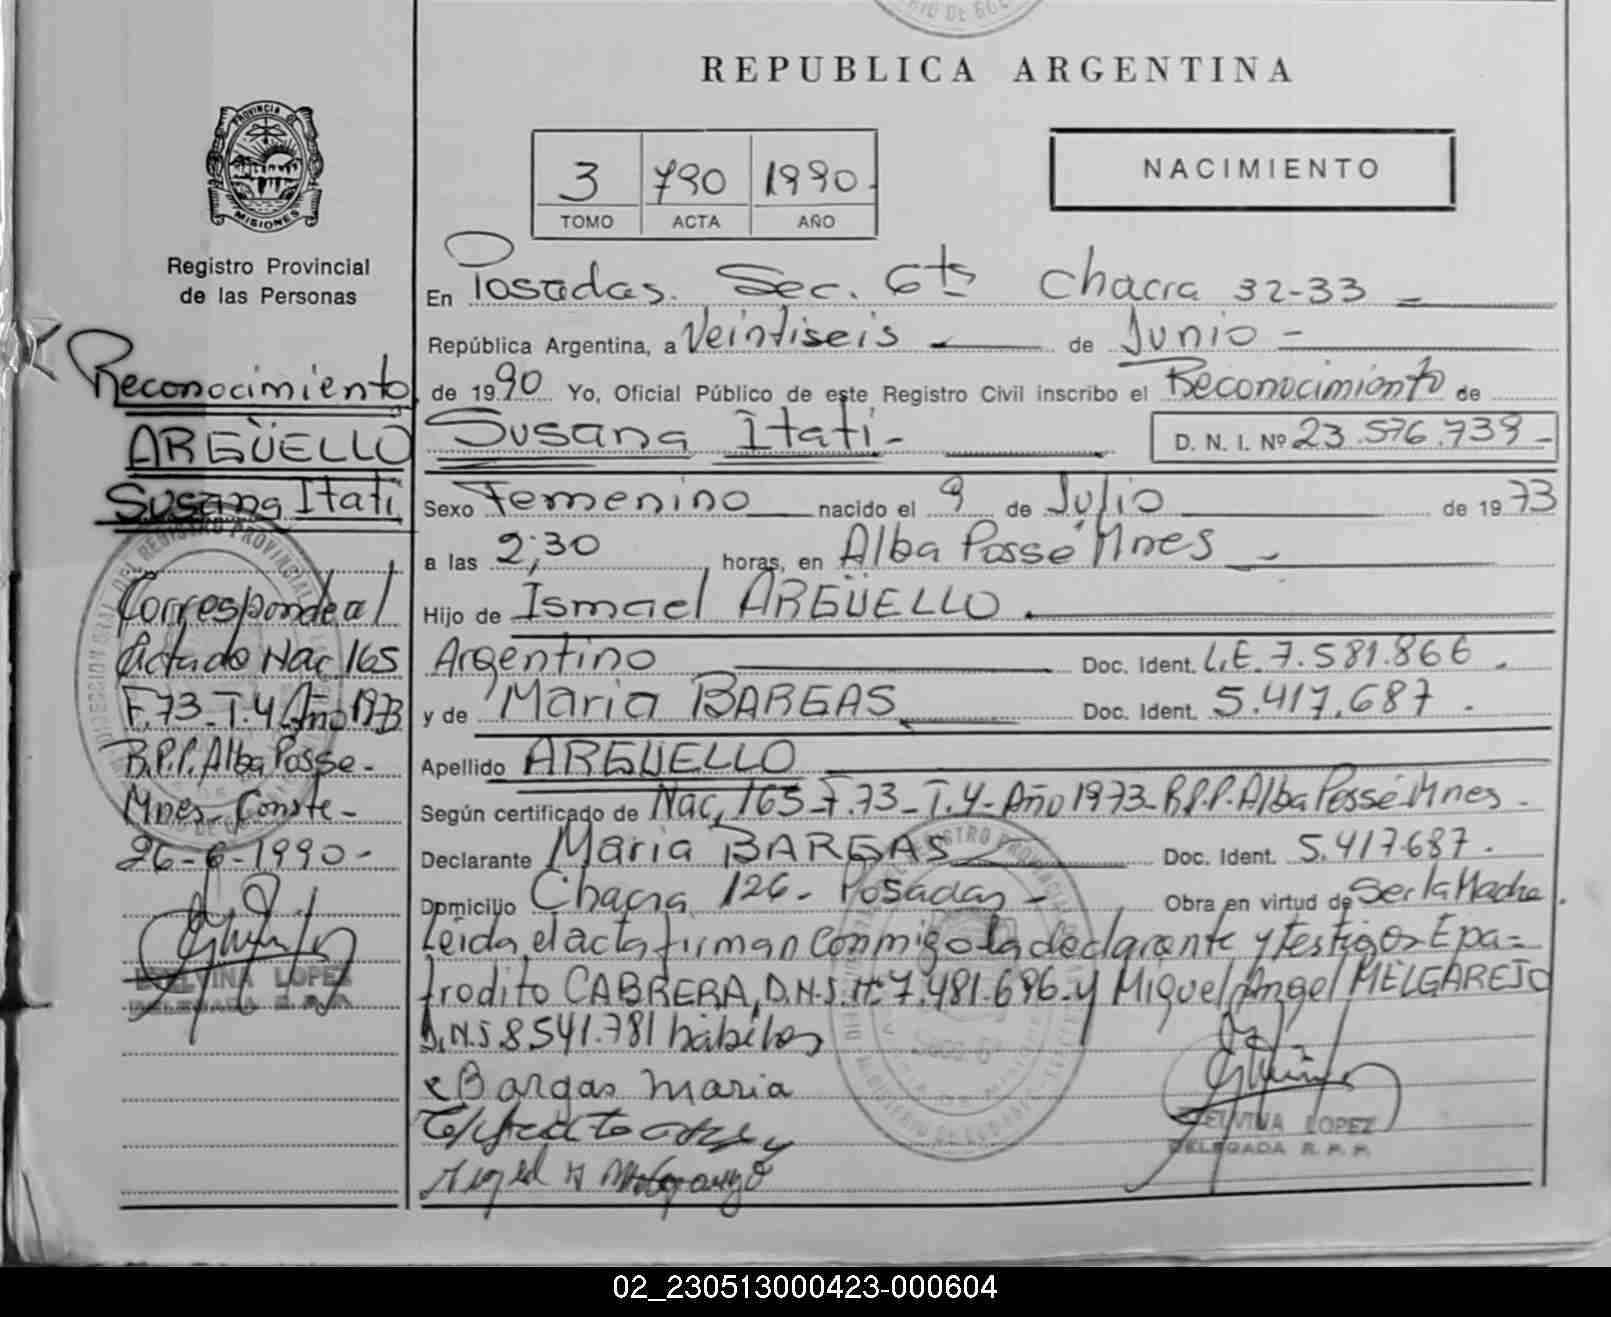 REPUBLICA ARGENTINA
PROVINCIA DE
MISIONES
Registro Provincial
de las Personas
3 790 1990.
TOMO ACTA AÑO
NACIMIENTO
En Posadas. Sec. 6ta Chacra 32-33
República Argentina, a Veintiseis de Junio -
de 1990 Yo, Oficial Público de este Registro Civil inscribo el Reconocimiento de
Susana Itatí - D. N. I. Nº 23.576.739 -
Sexo Femenino nacido el 9 de Julio de 1973
a las 2;30 horas, en Alba Posse Mnes -
Hijo de Ismael ARGÜELLO.
Argentino Doc. Ident. L.E. 7.581.866.
y de Maria BARGAS Doc. Ident. 5.417.687.
Apellido ARGÜELLO
Según certificado de Nac, 165-F.73-T.4-Año 1973-R.P.P. Alba Posse Mnes -
Declarante Maria BARGAS Doc. Ident. 5.417687.
Domicilio Chacra 126- Posadas - Obra en virtud de Ser la Madre.
Leida, el acta firman conmigo la declarante y testigos Epa=
frodito CABRERA, D.N.I. Nº 7.481.696-y Miguel Angel MELGAREJO
D.N.I 8.541.781 hábiles
Bargas maria
ELVINA LOPEZ
DELEGADA R. P. P.
Reconocimiento
ARGÜELLO
Susana Itatí
Corresponde al
Acta do Nac 165
F.73-T.4 Año 1973
R.P.P. Alba Posse-
Mnes- Conste-
26-6-1990-
ELVINA LOPEZ
DELEGADA R.P.P.
02_230513000423-000604